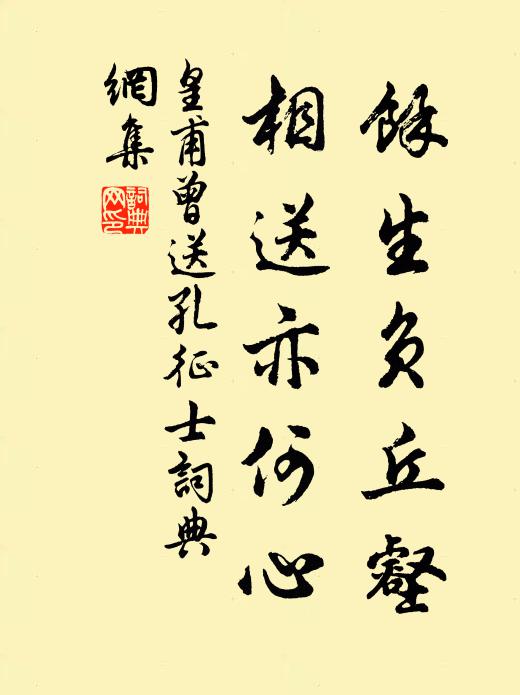 餘生負丘壑
相送亦何心
皇甫曾送孔征士詞典
網集
詞典
网印